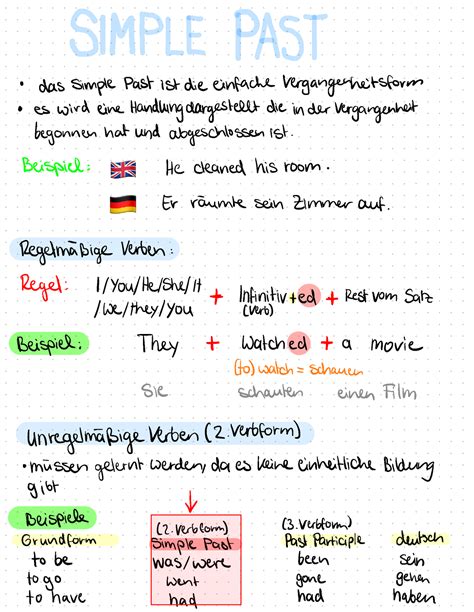 SIMPLE PAST
• das Simple Past ist die einfache Vergangenheitsform
• es wird eine Handlung dargestellt die in der Vergangenheit
begonnen hat und abgeschlossen ist.
Beispiel: He cleaned his room.
Er räumte sein Zimmer auf.
Regelmäßige Verben:
Regel: I/You/He/She/It + Infinitiv+ed + Rest vom Satz
/We/they/You (Verb)
Beispiel: They + watched + a movie
(to) watch = schauen
Sie schauten einen Film
Unregelmäßige Verben (2. Verbform)
• müssen gelernt werden, da es keine einheitliche Bildung
gibt
Beispiele (2. Verbform) (3. Verbform)
Grundform Simple Past Past Participle deutsch
to be was/were been sein
to go went gone gehen
to have had had haben